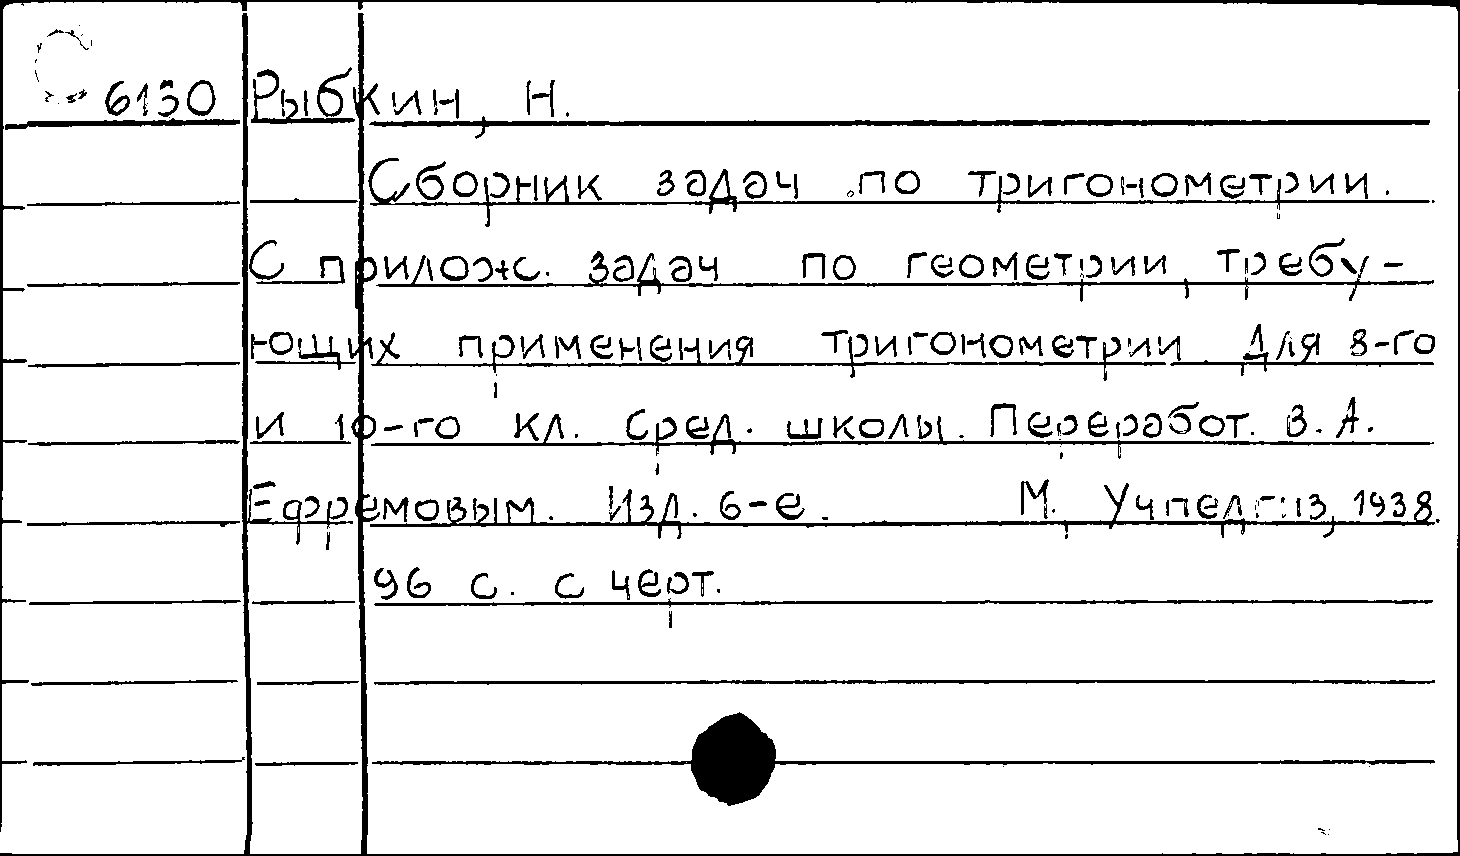 С 6130 Рыбкин, Н.
Сборник задач по тригонометрии.
С прилож. задач по геометрии, требу-
ющих применения тригонометрии. Для 8-го
и 10-го кл. сред. школы. Переработ. В. А.
Ефремовым. Изд. 6-е. М., Учпедгиз, 1938.
96 с. с черт.